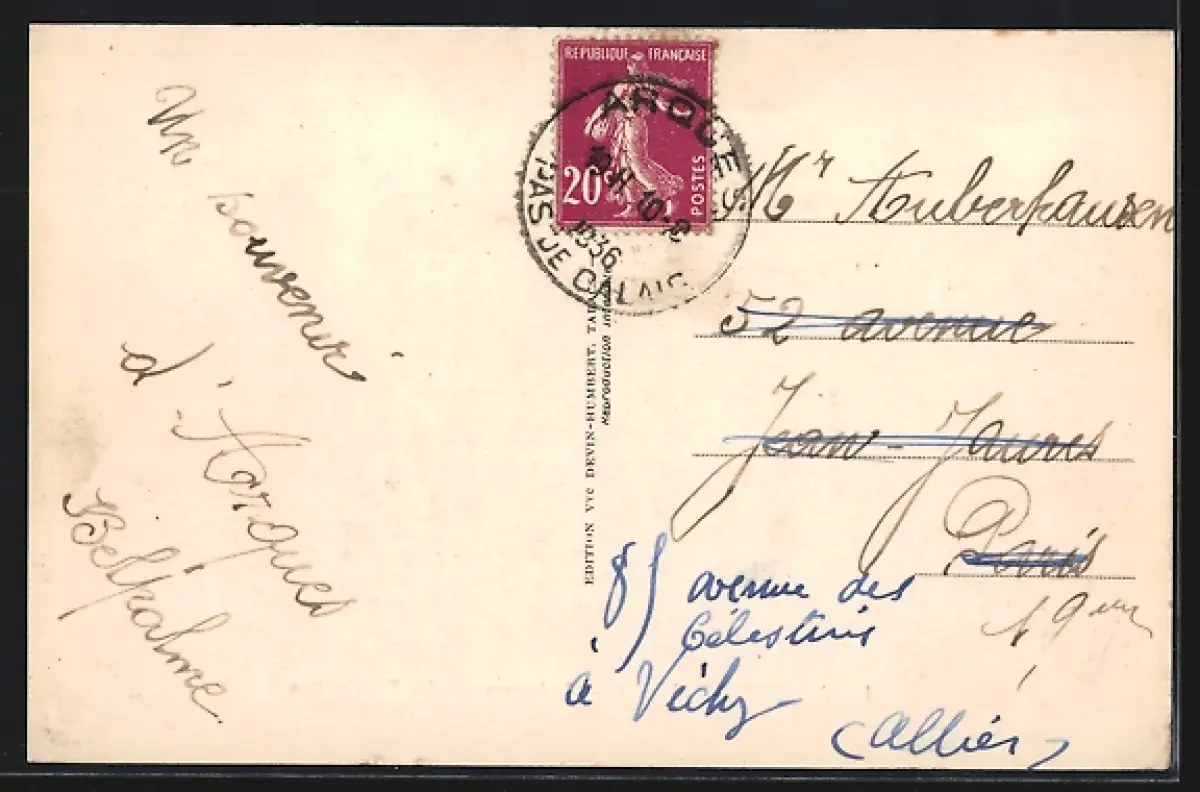 Un souvenir
d'Arques
Belpalme
RÉPUBLIQUE FRANÇAISE
20c
POSTES
ARQUES
1936
PAS DE CALAIS
EDITION Vve DEVIN-HUMBERT,
Reproduction
Mr Auberhausen
52 avenue
Jean-Jaurès
Paris
19
85 avenue des
Célestins
à Vichy
(Allier)